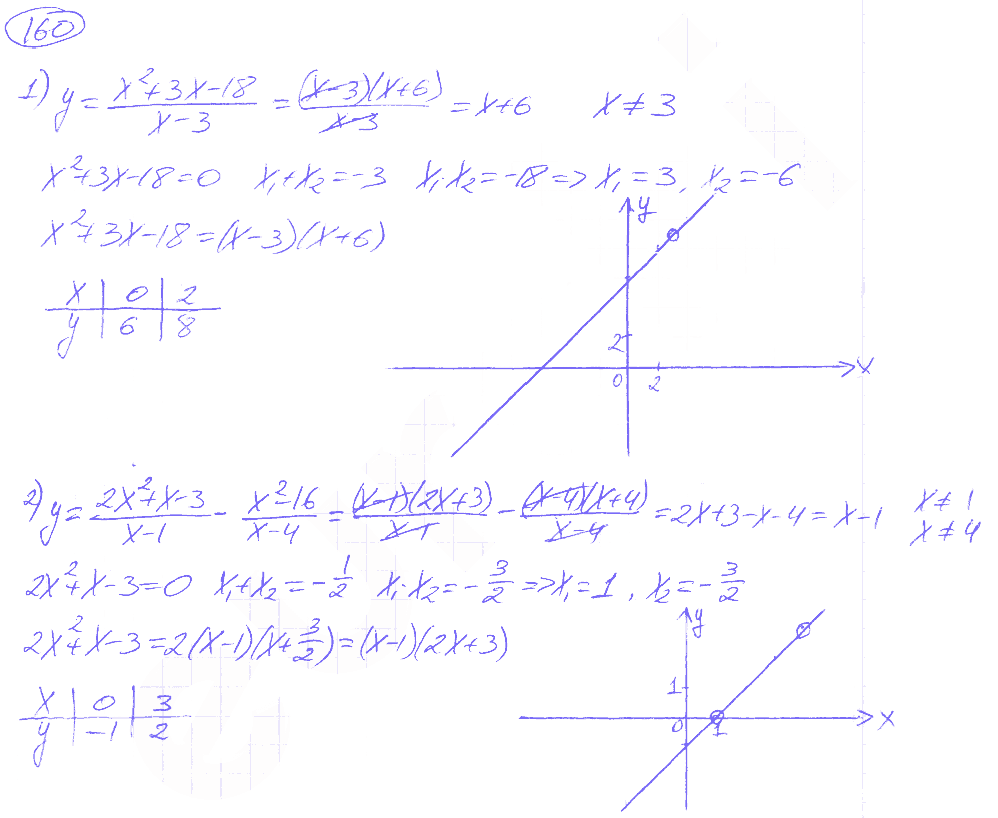 160
1) y = (x²+3x-18)/(x-3) = ((x-3)(x+6))/(x-3) = x+6 x ≠ 3
x²+3x-18=0 x₁+x₂=-3 x₁x₂=-18 => x₁=3, x₂=-6
x²+3x-18=(x-3)(x+6)
x | 0 | 2
y | 6 | 8
y
2
0 2 x
2) y = (2x²+x-3)/(x-1) - (x²-16)/(x-4) = ((x-1)(2x+3))/(x-1) - ((x-4)(x+4))/(x-4) = 2x+3-x-4 = x-1 x ≠ 1
x ≠ 4
2x²+x-3=0 x₁+x₂=-1/2 x₁·x₂=-3/2 => x₁=1, x₂=-3/2
2x²+x-3=2(x-1)(x+3/2)=(x-1)(2x+3)
x | 0 | 3
y | -1 | 2
y
1
0 1 x